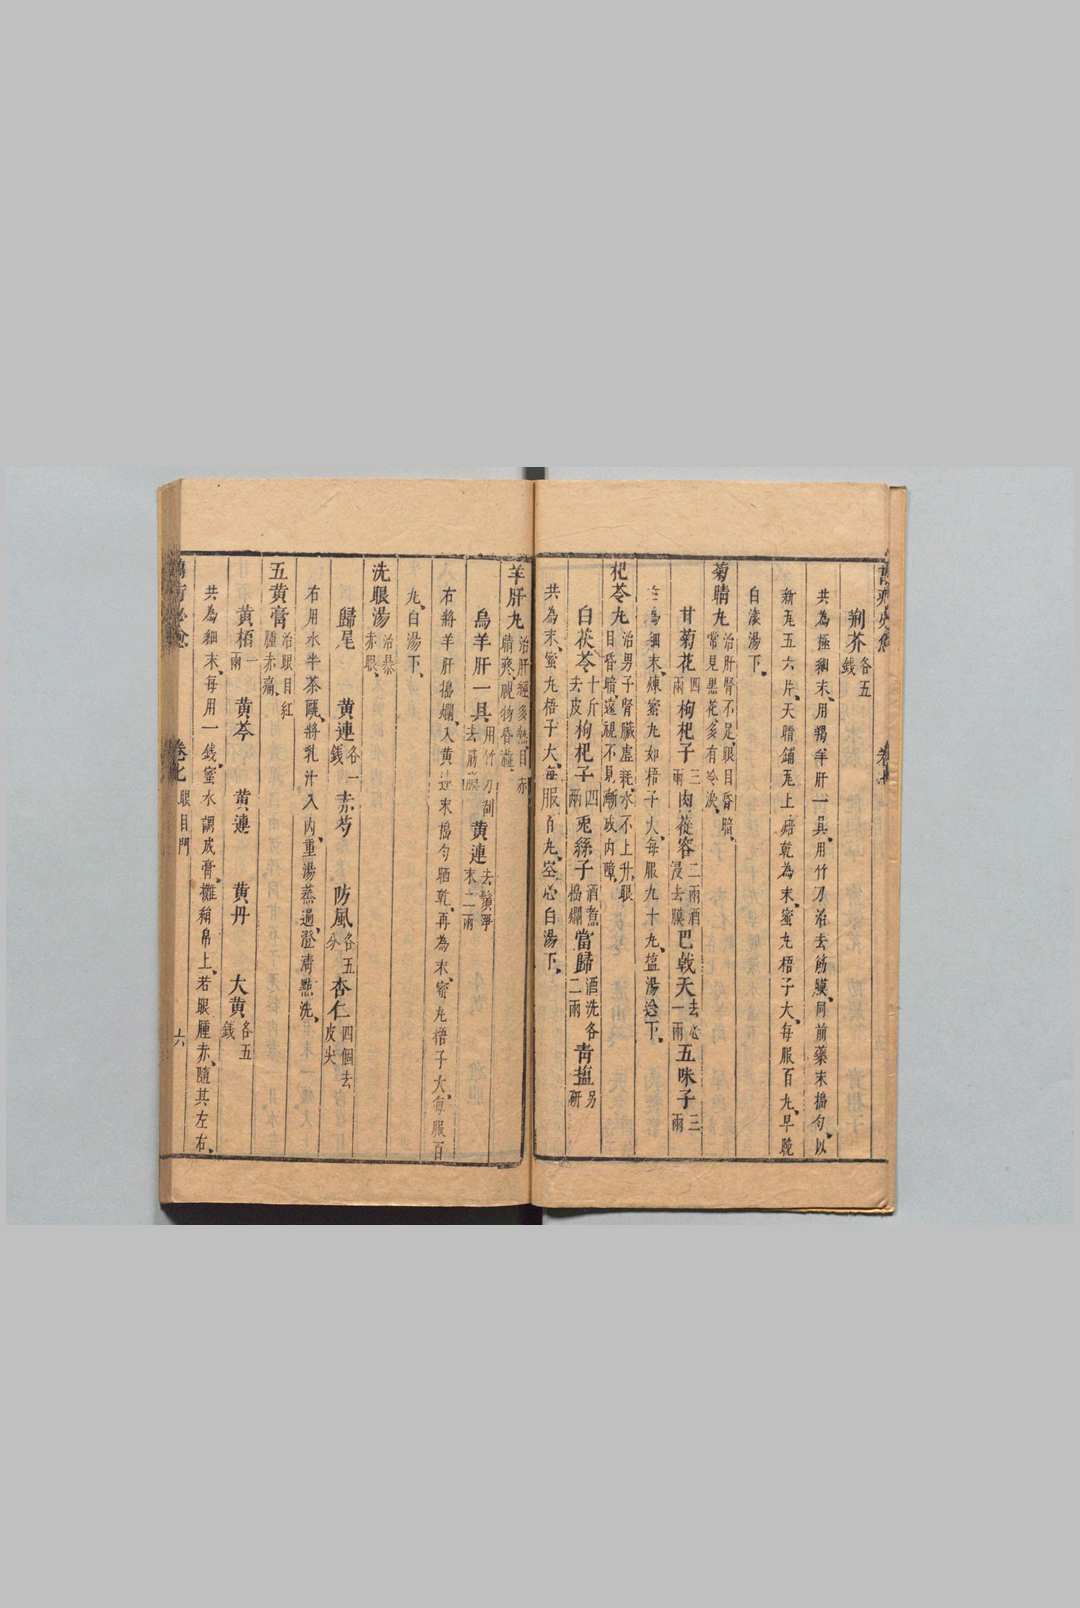 荊芥各五錢
共為極細末、用羯羊肝一具、用竹刀治去筋膜、同前藥末搗勻、以
新瓦五六片、天晴鋪瓦上、焙乾為末、蜜丸梧子大、每服百丸、早晚
白滚湯下、
菊睛丸治肝腎不足、眼目昏暗、常見黑花、多有冷淚、
甘菊花四兩枸杞子三兩肉蓯容二兩酒浸去膜巴戟天去心一兩五味子三兩
為細末、煉蜜丸如梧子大、每服九十丸、塩湯送下、
杞苓丸治男子腎臟虛耗、水不上升、眼目昏暗、遠視不見、漸成內障、
白茯苓十斤去皮枸杞子四兩兎絲子酒煮搗爛當歸酒洗各二兩青塩另研
共為末、蜜丸梧子大、每服百丸、空心白湯下、
羊肝丸治肝經多熱、目赤睛疼、視物昏澁、
烏羊肝一具用竹刀刮去筋膜黃連去鬚淨末二兩
右將羊肝搗爛、入黃連末搗勻晒乾、再為末、蜜丸梧子大、每服百
丸、白湯下、
洗眼湯治暴赤眼、
歸尾　黃連各一錢赤芍　防風各五分杏仁四個去皮尖
右用水半茶甌、將乳汁入內、重湯蒸過、澄清點洗、
五黃膏治眼目紅腫赤痛、
黃栢一兩　黃芩　黃連　黃丹　大黃各五錢
共為細末、每用一錢、蜜水調成膏、攤稍帛上、若眼腫赤、隨其左右、
卷七眼目門　六